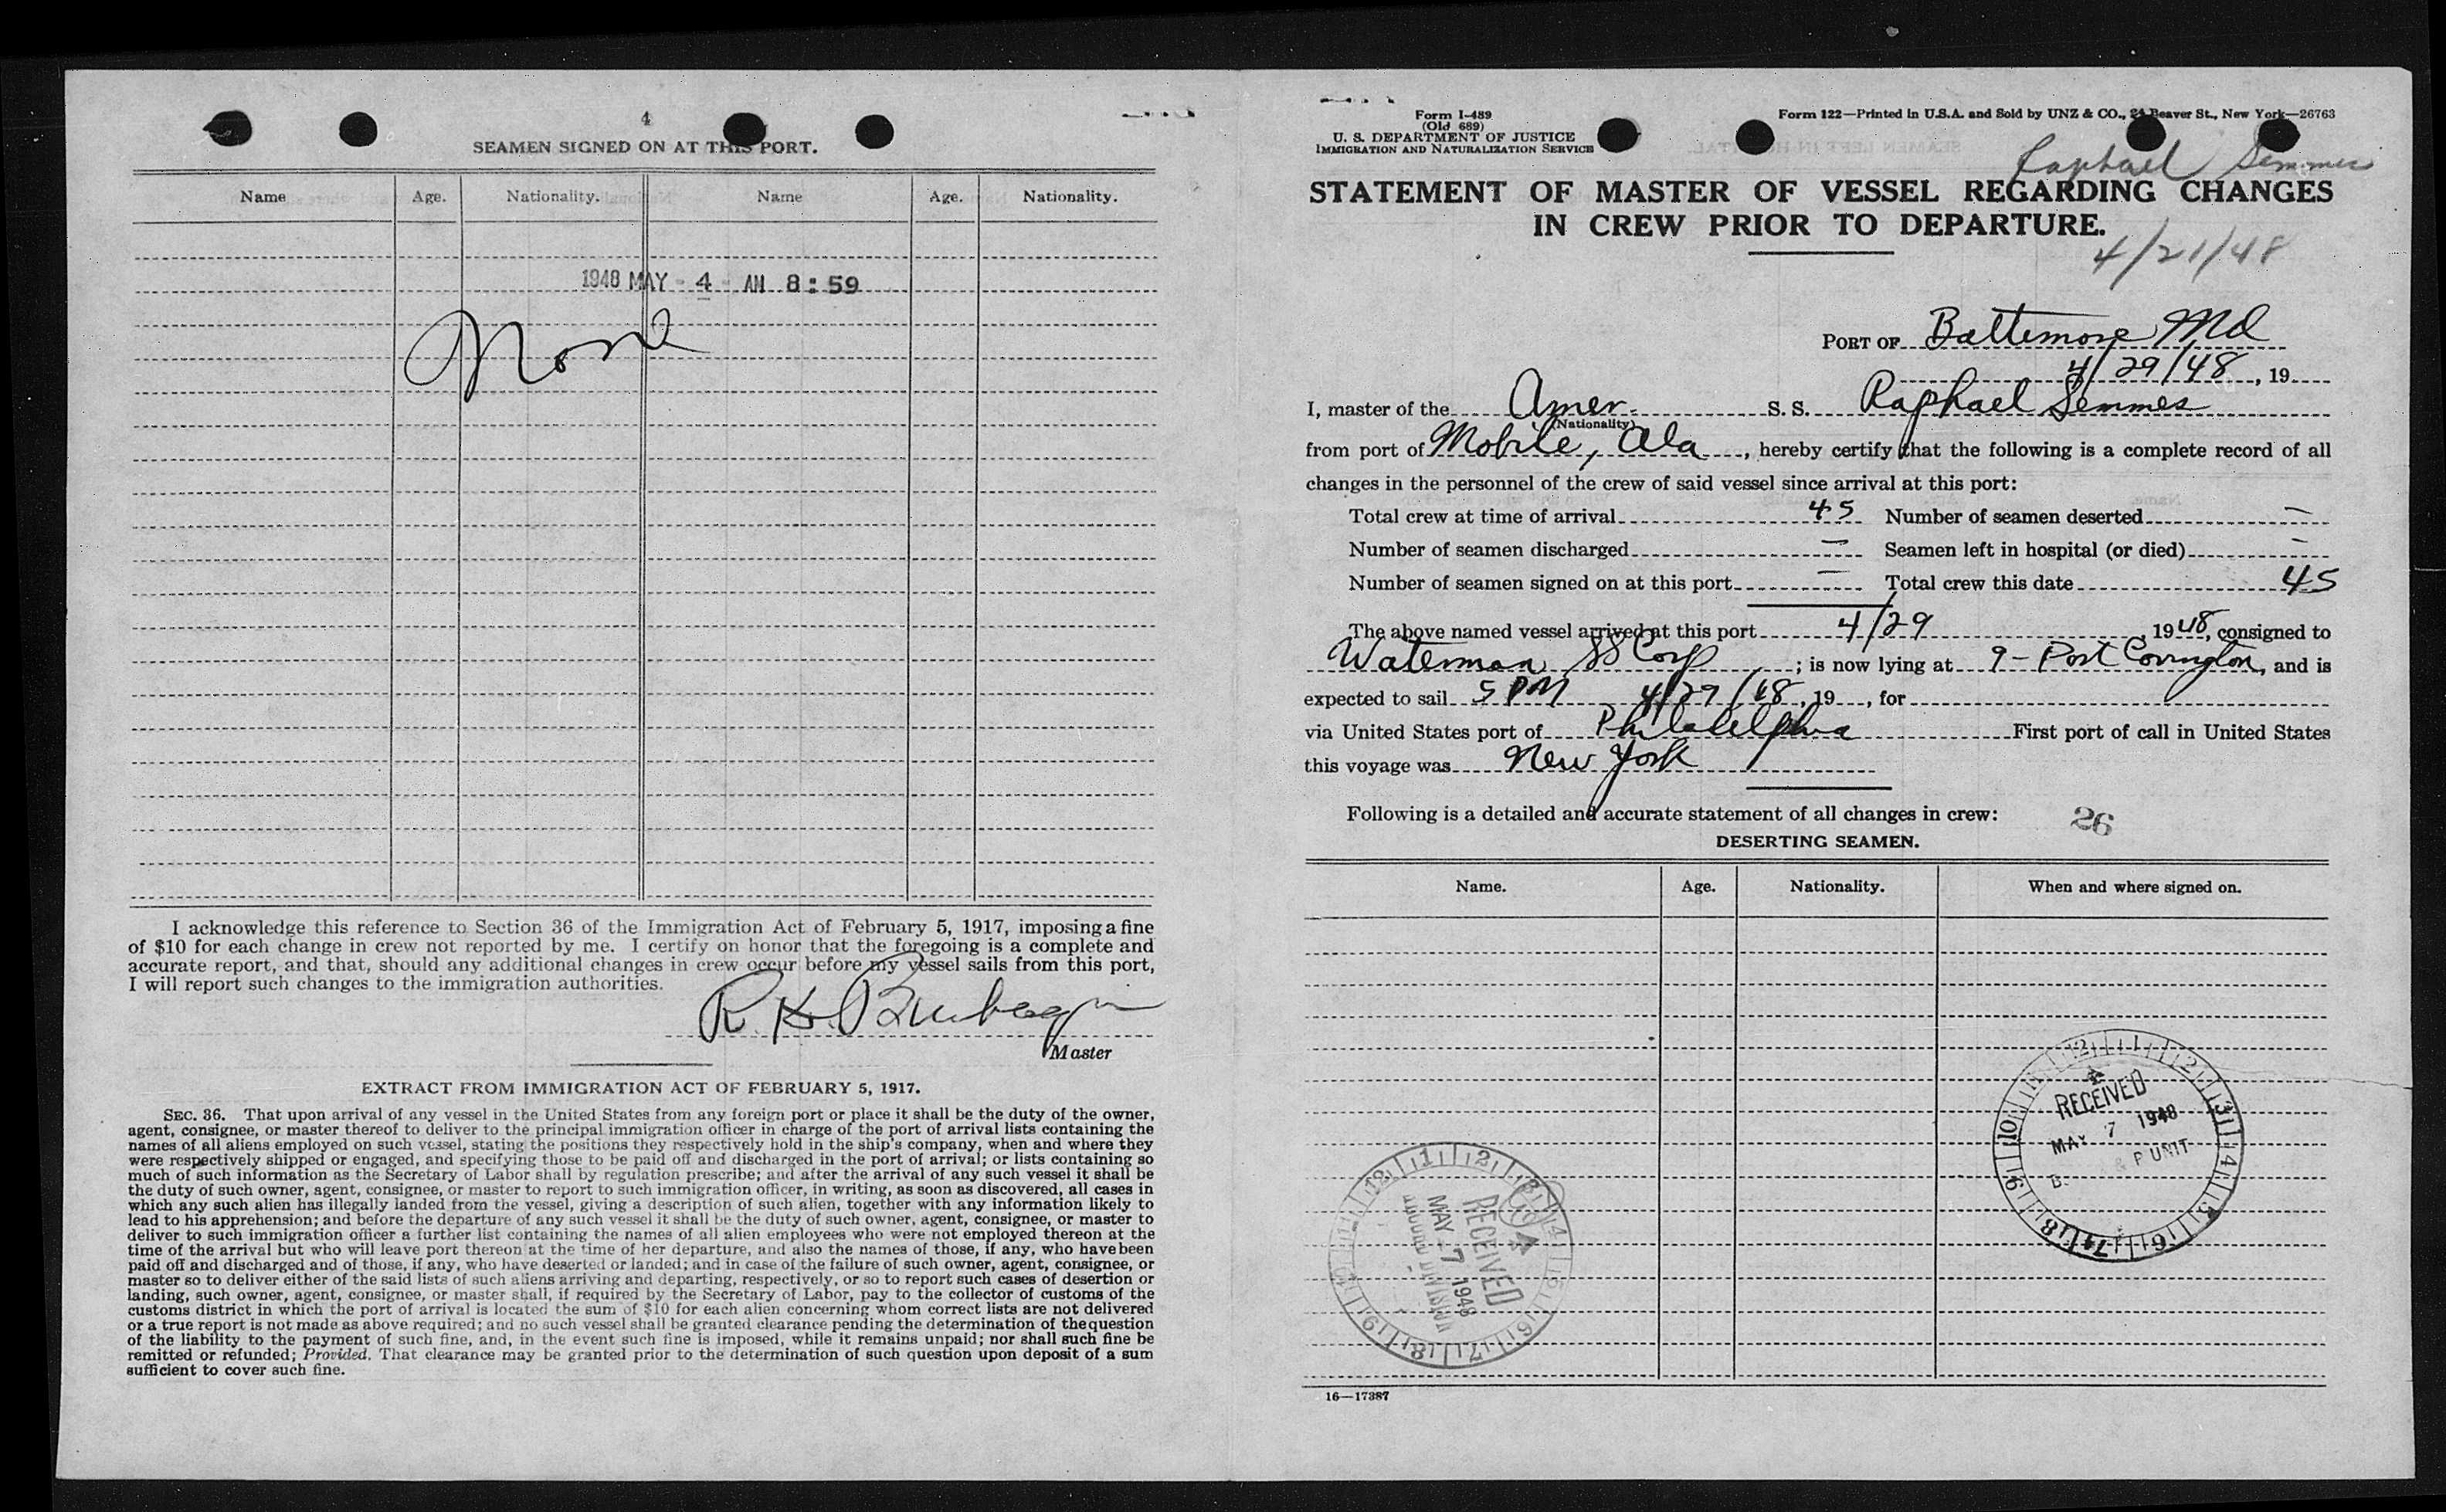 4
SEAMEN SIGNED ON AT THIS PORT.
Name Age. Nationality. Name Age. Nationality.
1948 MAY - 4 - AM 8:59
None
I acknowledge this reference to Section 36 of the Immigration Act of February 5, 1917, imposing a fine
of $10 for each change in crew not reported by me. I certify on honor that the foregoing is a complete and
accurate report, and that, should any additional changes in crew occur before my vessel sails from this port,
I will report such changes to the immigration authorities.
R. K.
Master
EXTRACT FROM IMMIGRATION ACT OF FEBRUARY 5, 1917.
SEC. 36. That upon arrival of any vessel in the United States from any foreign port or place it shall be the duty of the owner,
agent, consignee, or master thereof to deliver to the principal immigration officer in charge of the port of arrival lists containing the
names of all aliens employed on such vessel, stating the positions they respectively hold in the ship's company, when and where they
were respectively shipped or engaged, and specifying those to be paid off and discharged in the port of arrival; or lists containing so
much of such information as the Secretary of Labor shall by regulation prescribe; and after the arrival of any such vessel it shall be
the duty of such owner, agent, consignee, or master to report to such immigration officer, in writing, as soon as discovered, all cases in
which any such alien has illegally landed from the vessel, giving a description of such alien, together with any information likely to
lead to his apprehension; and before the departure of any such vessel it shall be the duty of such owner, agent, consignee, or master to
deliver to such immigration officer a further list containing the names of all alien employees who were not employed thereon at the
time of the arrival but who will leave port thereon at the time of her departure, and also the names of those, if any, who have been
paid off and discharged and of those, if any, who have deserted or landed; and in case of the failure of such owner, agent, consignee, or
master so to deliver either of the said lists of such aliens arriving and departing, respectively, or so to report such cases of desertion or
landing, such owner, agent, consignee, or master shall, if required by the Secretary of Labor, pay to the collector of customs of the
customs district in which the port of arrival is located the sum of $10 for each alien concerning whom correct lists are not delivered
or a true report is not made as above required; and no such vessel shall be granted clearance pending the determination of the question
of the liability to the payment of such fine, and, in the event such fine is imposed, while it remains unpaid; nor shall such fine be
remitted or refunded; Provided, That clearance may be granted prior to the determination of such question upon deposit of a sum
sufficient to cover such fine.
Form I-489
(Old 689)
U. S. DEPARTMENT OF JUSTICE
IMMIGRATION AND NATURALIZATION SERVICE
Form 122—Printed in U.S.A. and Sold by UNZ & CO., 24 Beaver St., New York—26763
Raphael Semmes
STATEMENT OF MASTER OF VESSEL REGARDING CHANGES
IN CREW PRIOR TO DEPARTURE.
4/21/48
PORT OF Baltimore Md
4/29/48, 19
I, master of the Amer. S. S. Raphael Semmes
(Nationality)
from port of Mobile, Ala, hereby certify that the following is a complete record of all
changes in the personnel of the crew of said vessel since arrival at this port:
Total crew at time of arrival 45 Number of seamen deserted —
Number of seamen discharged — Seamen left in hospital (or died) —
Number of seamen signed on at this port — Total crew this date 45
The above named vessel arrived at this port 4/29 1948, consigned to
Waterman SS Corp; is now lying at 9 - Port Covington, and is
expected to sail 5 PM 4/29/48, 19, for
via United States port of Philadelphia First port of call in United States
this voyage was New York
Following is a detailed and accurate statement of all changes in crew:
26
DESERTING SEAMEN.
Name. Age. Nationality. When and where signed on.
RECEIVED
MAY 7 1948
P UNIT
RECEIVED
MAY - 7 1948
16—17387